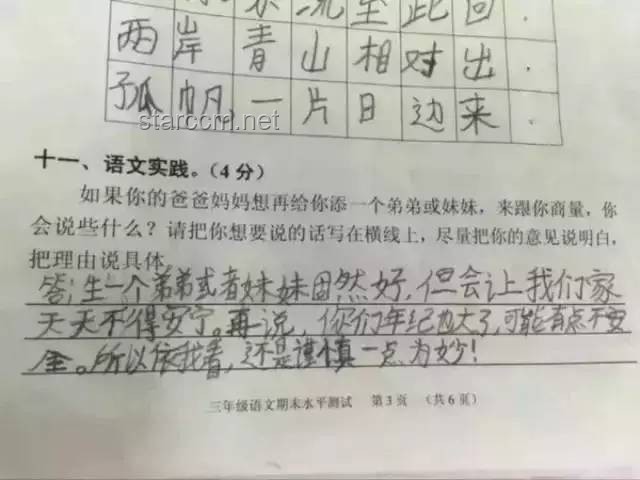 流至此回.
两岸青山相对出.
孤帆一片日边来.
starccm.net
十一、语文实践。(4分)
如果你的爸爸妈妈想再给你添一个弟弟或妹妹，来跟你商量，你
会说些什么？请把你想要说的话写在横线上，尽量把你的意见说明白，
把理由说具体
答:生一个弟弟或者妹妹固然好,但会让我们家
天天不得安宁。再说，你们年纪也大了,可能有点不安
全。所以依我看,还是谨慎一点为妙!
三年级语文期末水平测试 第3页 (共6页)